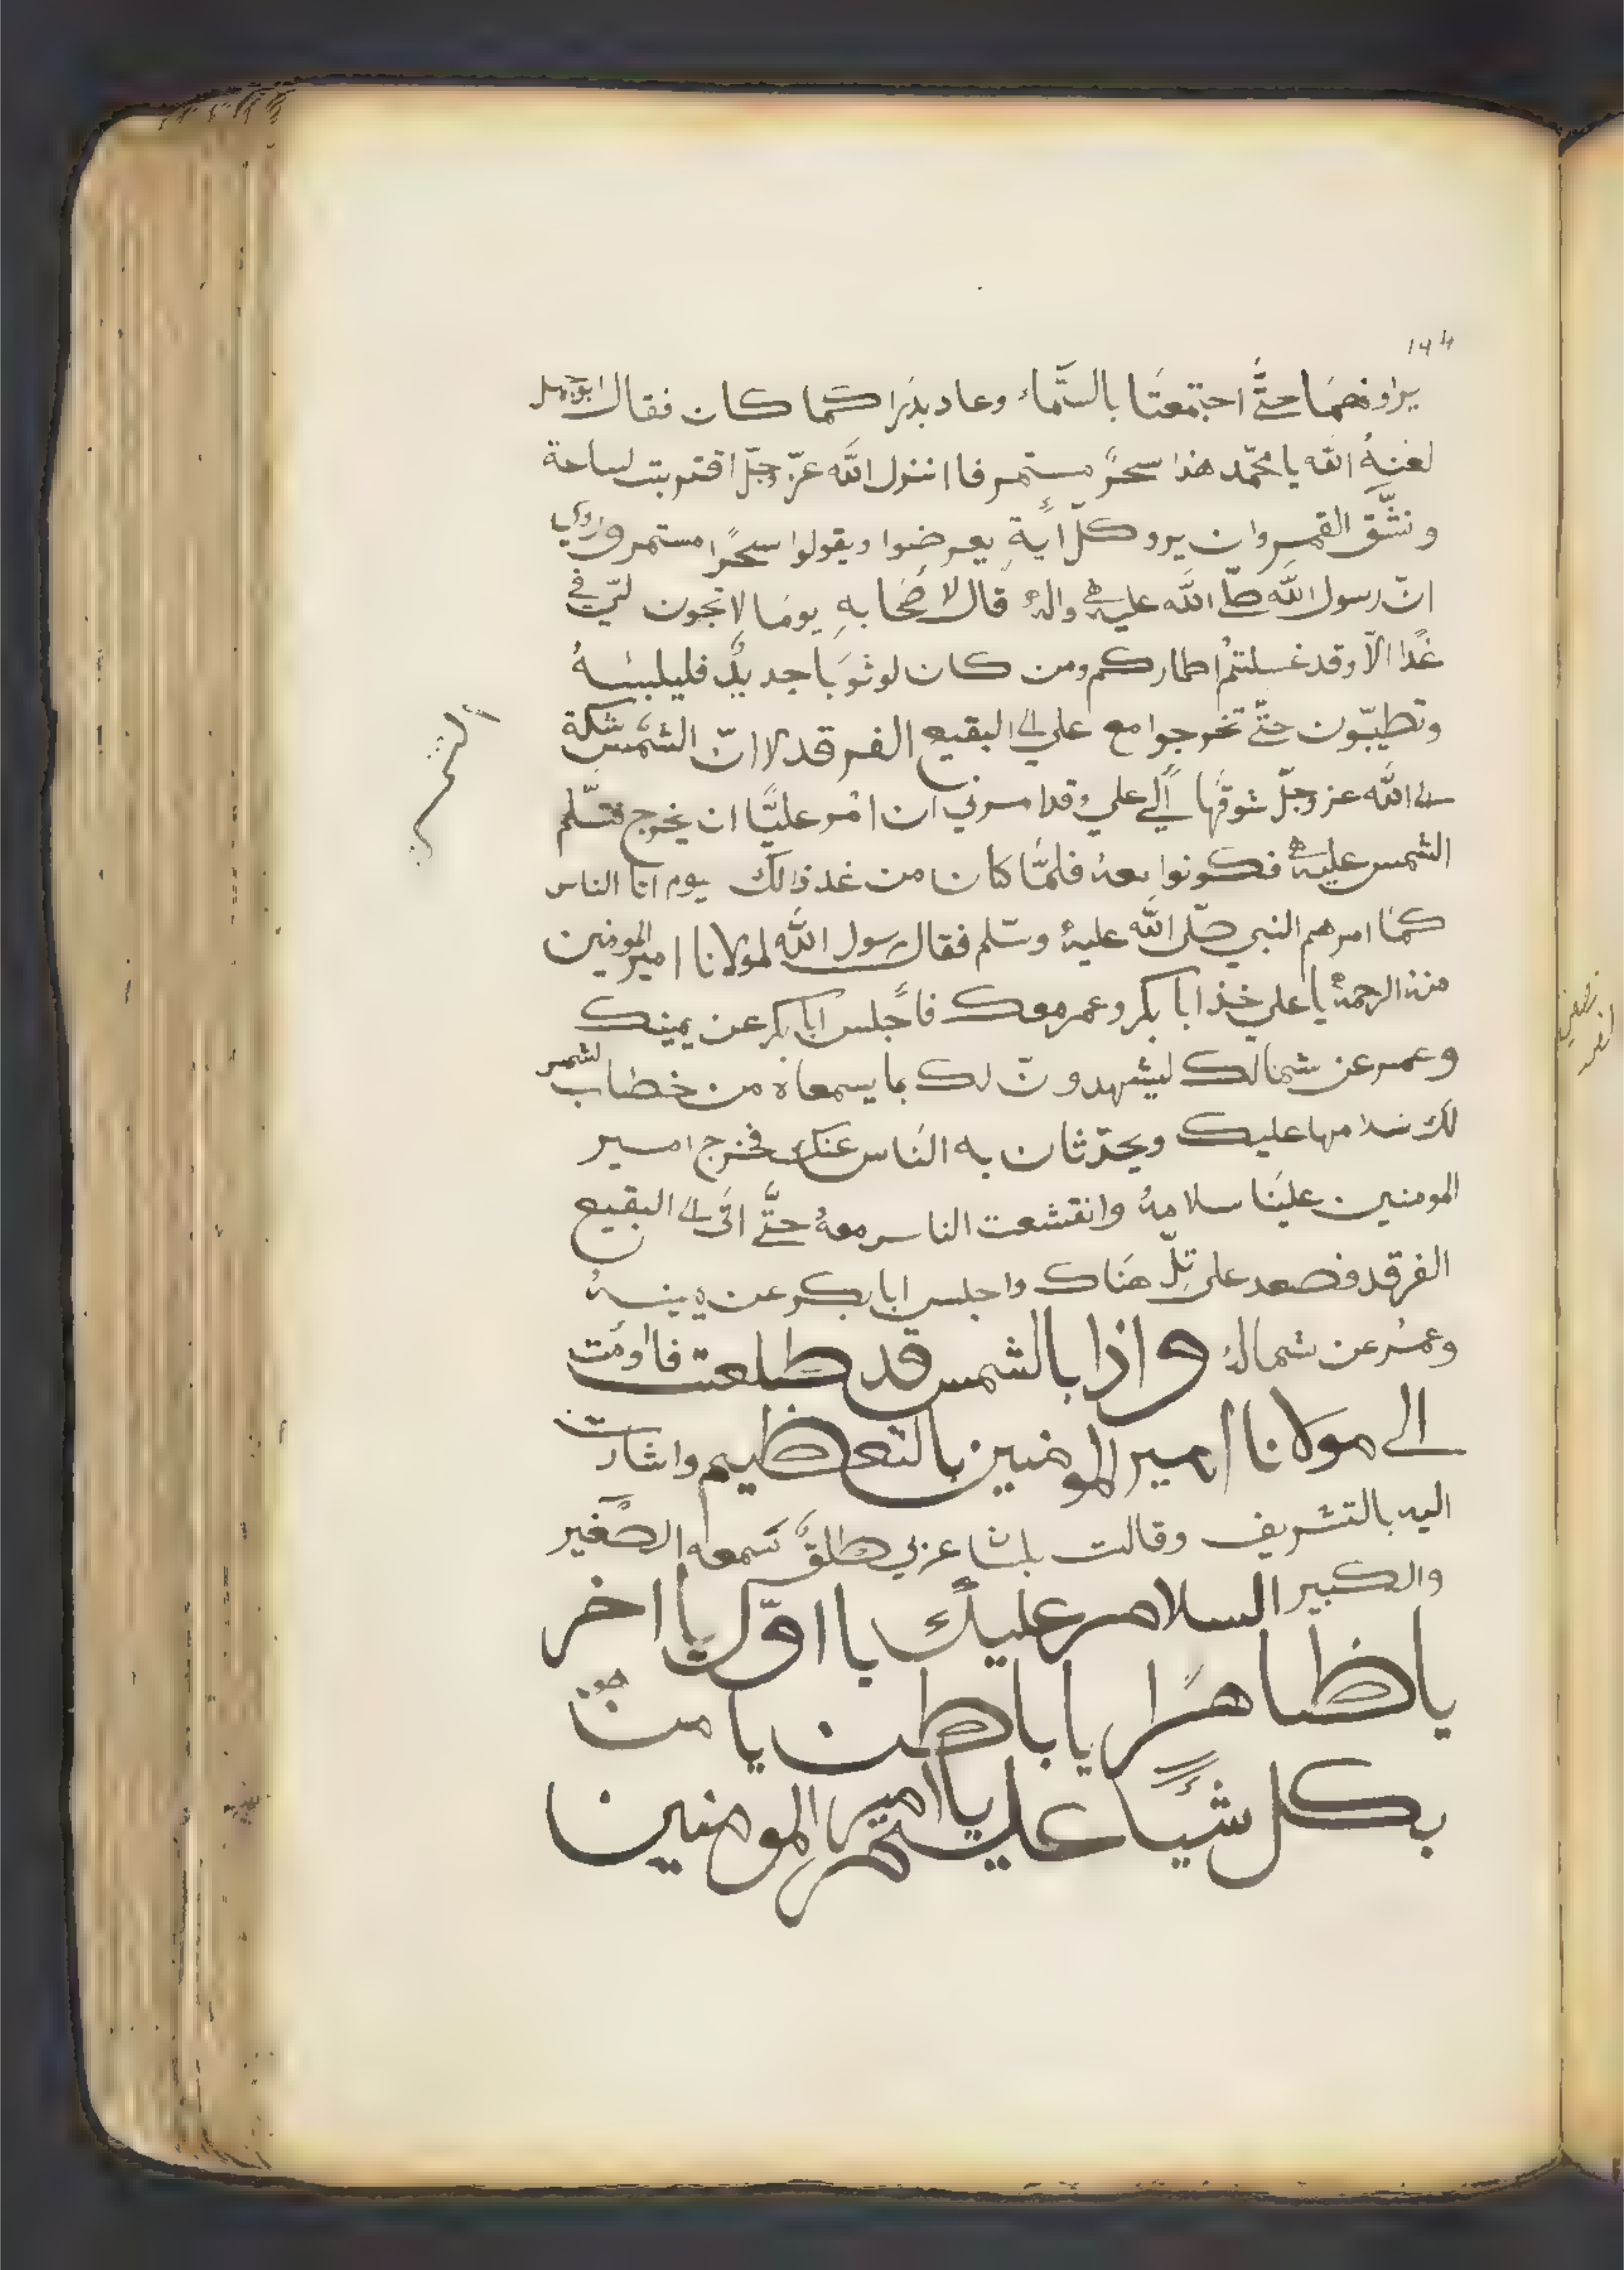 ١٩٤
يراونهما حتَّى اجتمعتا بالسَّماء وعاد بدَرا كما كان فقال ابو جهل
لعنهُ الله يا محمّد هذا سحرً مستمر فاانزل الله عزّ وجلّ اقتربت لساعة
ونشَّق القمر وان يرو كلّ اية يعرضوا ويقولوا سحرًا مستمر
انّ رسول الله صلّى الله عليه واله قال لاصحابهِ يومًا لاتجون
غدًا الّا وقد غسلتمُ اطماركم ومن كان لو ثوَبا جديدٌ فليلبسهُ
وتطيّبون حتَّى تخرجوا مع علي الى البقيع الفرقد لاانّ الشمس شكة
الى الله عز وجلّ شوقُها الى علي وقدامرني ان امُر عليًّا ان يخرج فتسّلم
الشمس عليه فكونوا معهُ فلمَّا كان من غد ذالك يوم اتا الناس
كما امرهم النبي صلّى الله عليهُ وسّلم فقال رسول الله لمولانا امير المومنين
منه الرحمة يا علي خذ ابا بكر وعمر معك فاجلس ابا بكر عن يمينك
وعمر عن شمالك ليشهدونّ لك بما يسمعاه من خطاب لشمس
لك سلامها عليك ويحدّثان به الناس عنك فخرج امير
المومنين علينا سلامهُ وانقشعت الناس معهُ حتَّى اتى الى البقيع
الفرقد فصعد على تِلّ هَناك واجلس ابا بكر عن يمينهُ
وعمرُ عن شمالهُ واذا بالشمس قد طلعت فااومت
الى مولانا امير المومنين بالتعظيم واشارت
اليه بالتشريف وقالت بلسًا عربي طلقً تسمعه الصغير
والكبير السلام عليك يا اوّل يا اخر
يا ظاهرًا يا باطن يا من هو
بكل شيًا عليم يا امير المومنين